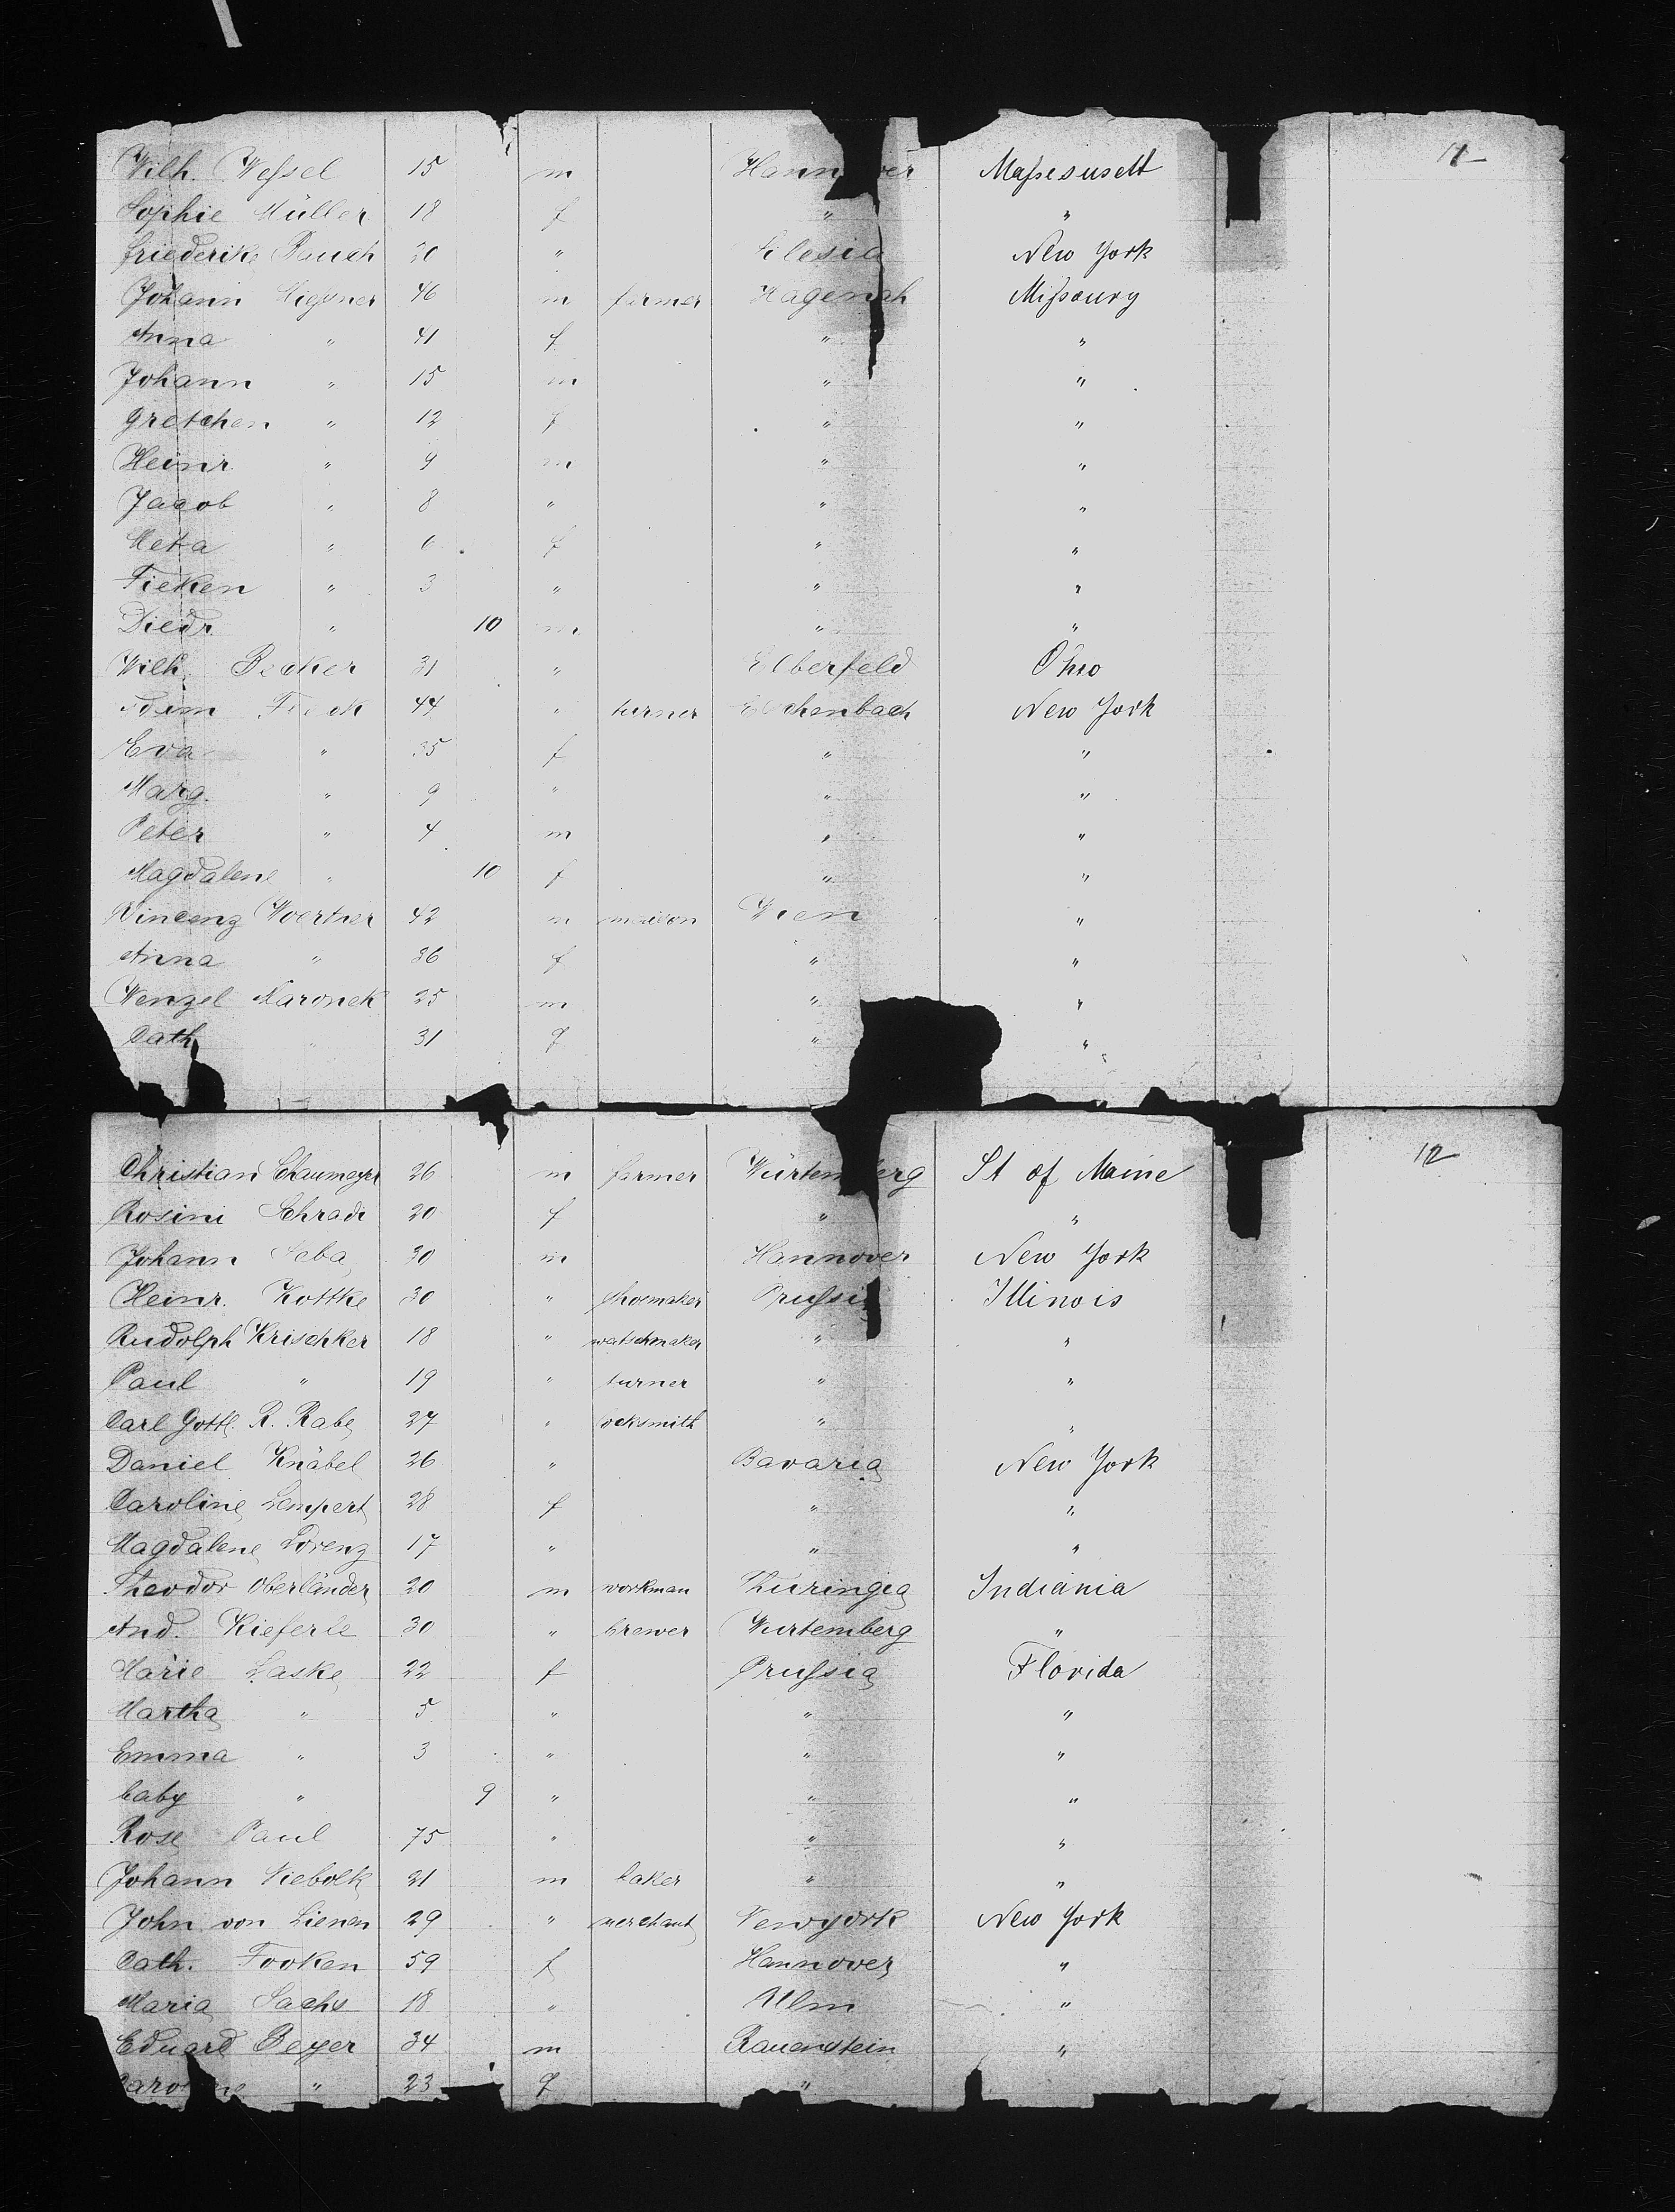 11
Wilh. Weſsel 15 m Hann ver Maſsesusett
Sophie Müller 18 f " "
Friederike Rauch 20 " Silesia New York
Johann 46 m farmer Hagenah Miſsoury
Anna " 41 f " "
Johann " 15 m " "
Gretchen " 12 f " "
Heinr. " 9 m " "
Jacob " 8 " " "
Meta " 6 f " "
Fieken " 3 " " "
Diedr. " 10 m " "
Wilh. Becker 31 " Elberfeld Ohio
44 " turner chenbach New York
Eva " 35 f " "
Marg. " 9 " " "
Peter " 4 m " "
Magdalene " 10 f " "
Vincenz Woertner 42 m mason Wien "
Anna " 36 f " "
Wenzel Karonek 25 m " "
Cath. " 31 f " "
12
Christian Schaumeyer 26 m farmer Würtem erg St of Maine
Rosine Schrade 20 f " "
Johann Seba 30 m Hannover New York
Heinr. Kottke 30 " shoemaker Pruſsia Illinois
Rudolph Krischker 18 " watschmaker " "
Paul " 19 " turner " "
Carl Gottl. R. Rabe 27 " ocksmith " "
Daniel Knäbel 26 " Bavaria New York
Caroline Lempert 28 f " "
Magdalene Lorenz 17 " " "
Theodor Oberländer 20 m workman Thuringia Indiania
And. Kieferle 30 " brewer Wurtemberg "
Marie Laske 22 f Pruſsia Florida
Martha " 5 " " "
Emma " 3 " " "
baby " 9 " " "
Rose Paul 75 " " "
Johann Niebolk 21 m baker " "
John von Lienen 29 " merchant Newyork New York
Cath. Fooken 59 f Hannover "
Maria Sachs 18 " Ulm "
Eduard Beyer 34 m Rauenstein "
Caro ne " 23 f "